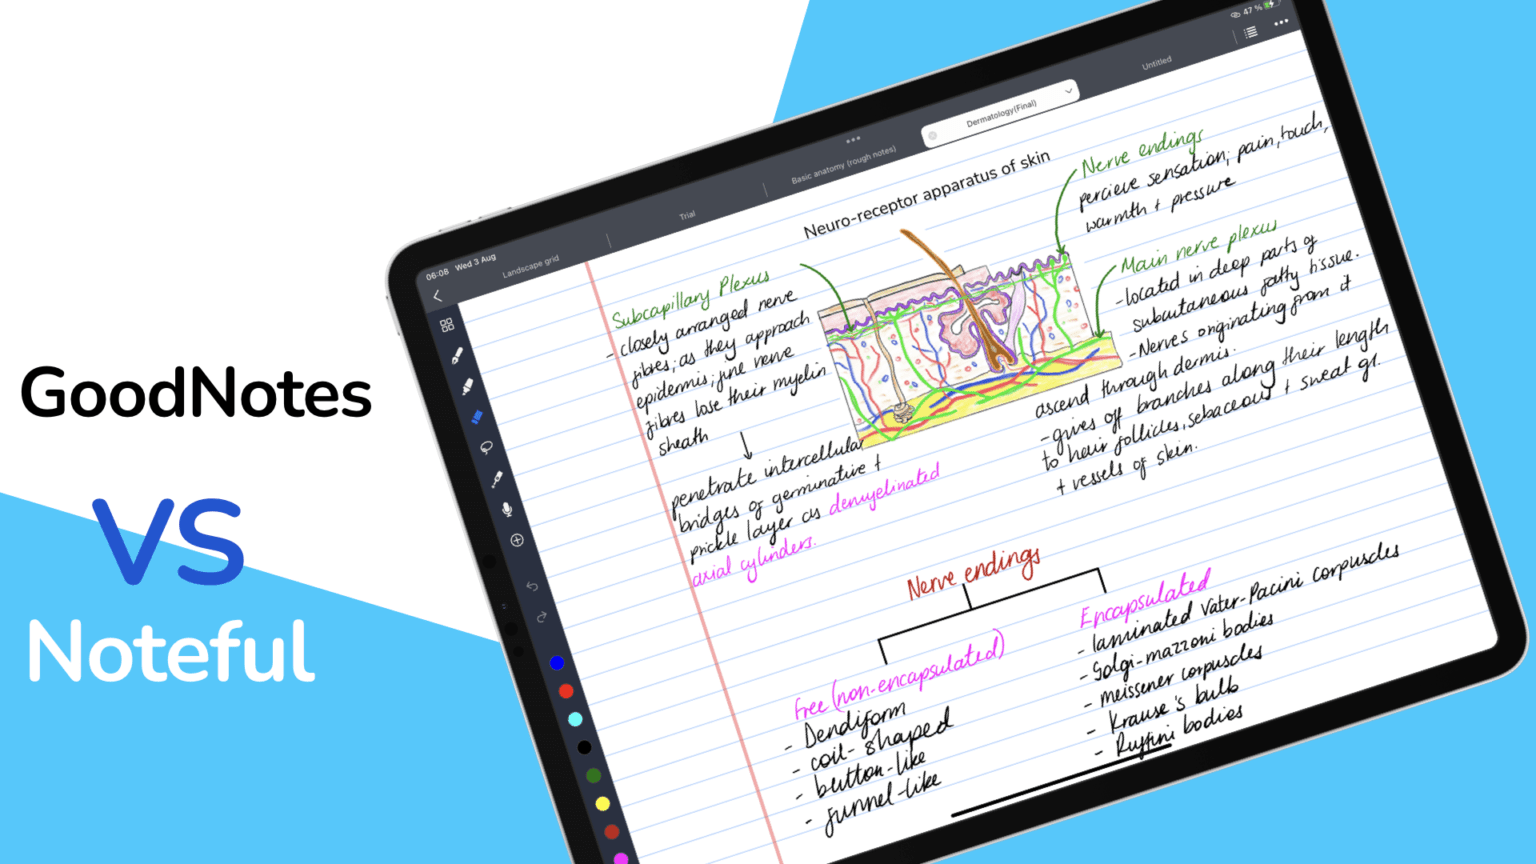 GoodNotes
VS
Noteful
06:08 Wed 3 Aug
47 %
Landscape grid
Trial
Basic anatomy (rough notes)
Dermatology(Final)
Untitled
Neuro-receptor apparatus of skin
Subcapillary Plexus
- closely arranged nerve
fibres; as they approach
epidermis; fine nerve
fibres lose their myelin
sheath
penetrate intercellular
bridges of germinative +
prickle layer as demyelinated
axial cylinders.
Nerve endings
percieve sensation; pain, touch,
warmth + pressure
Main nerve plexus
- located in deep parts of
subcutaneous fatty tissue.
- Nerves originating from it
ascend through dermis.
- gives off branches along their length
to hair follicles, sebaceous + sweat gl.
+ vessels of skin.
Nerve endings
Free (non-encapsulated)
- Dendiform
- coil-shaped
- button-like
- funnel-like
Encapsulated
- laminated Vater-Pacini corpuscles
- Golgi-mazzoni bodies
- meissener corpuscles
- Krause's bulb
- Ruffini bodies